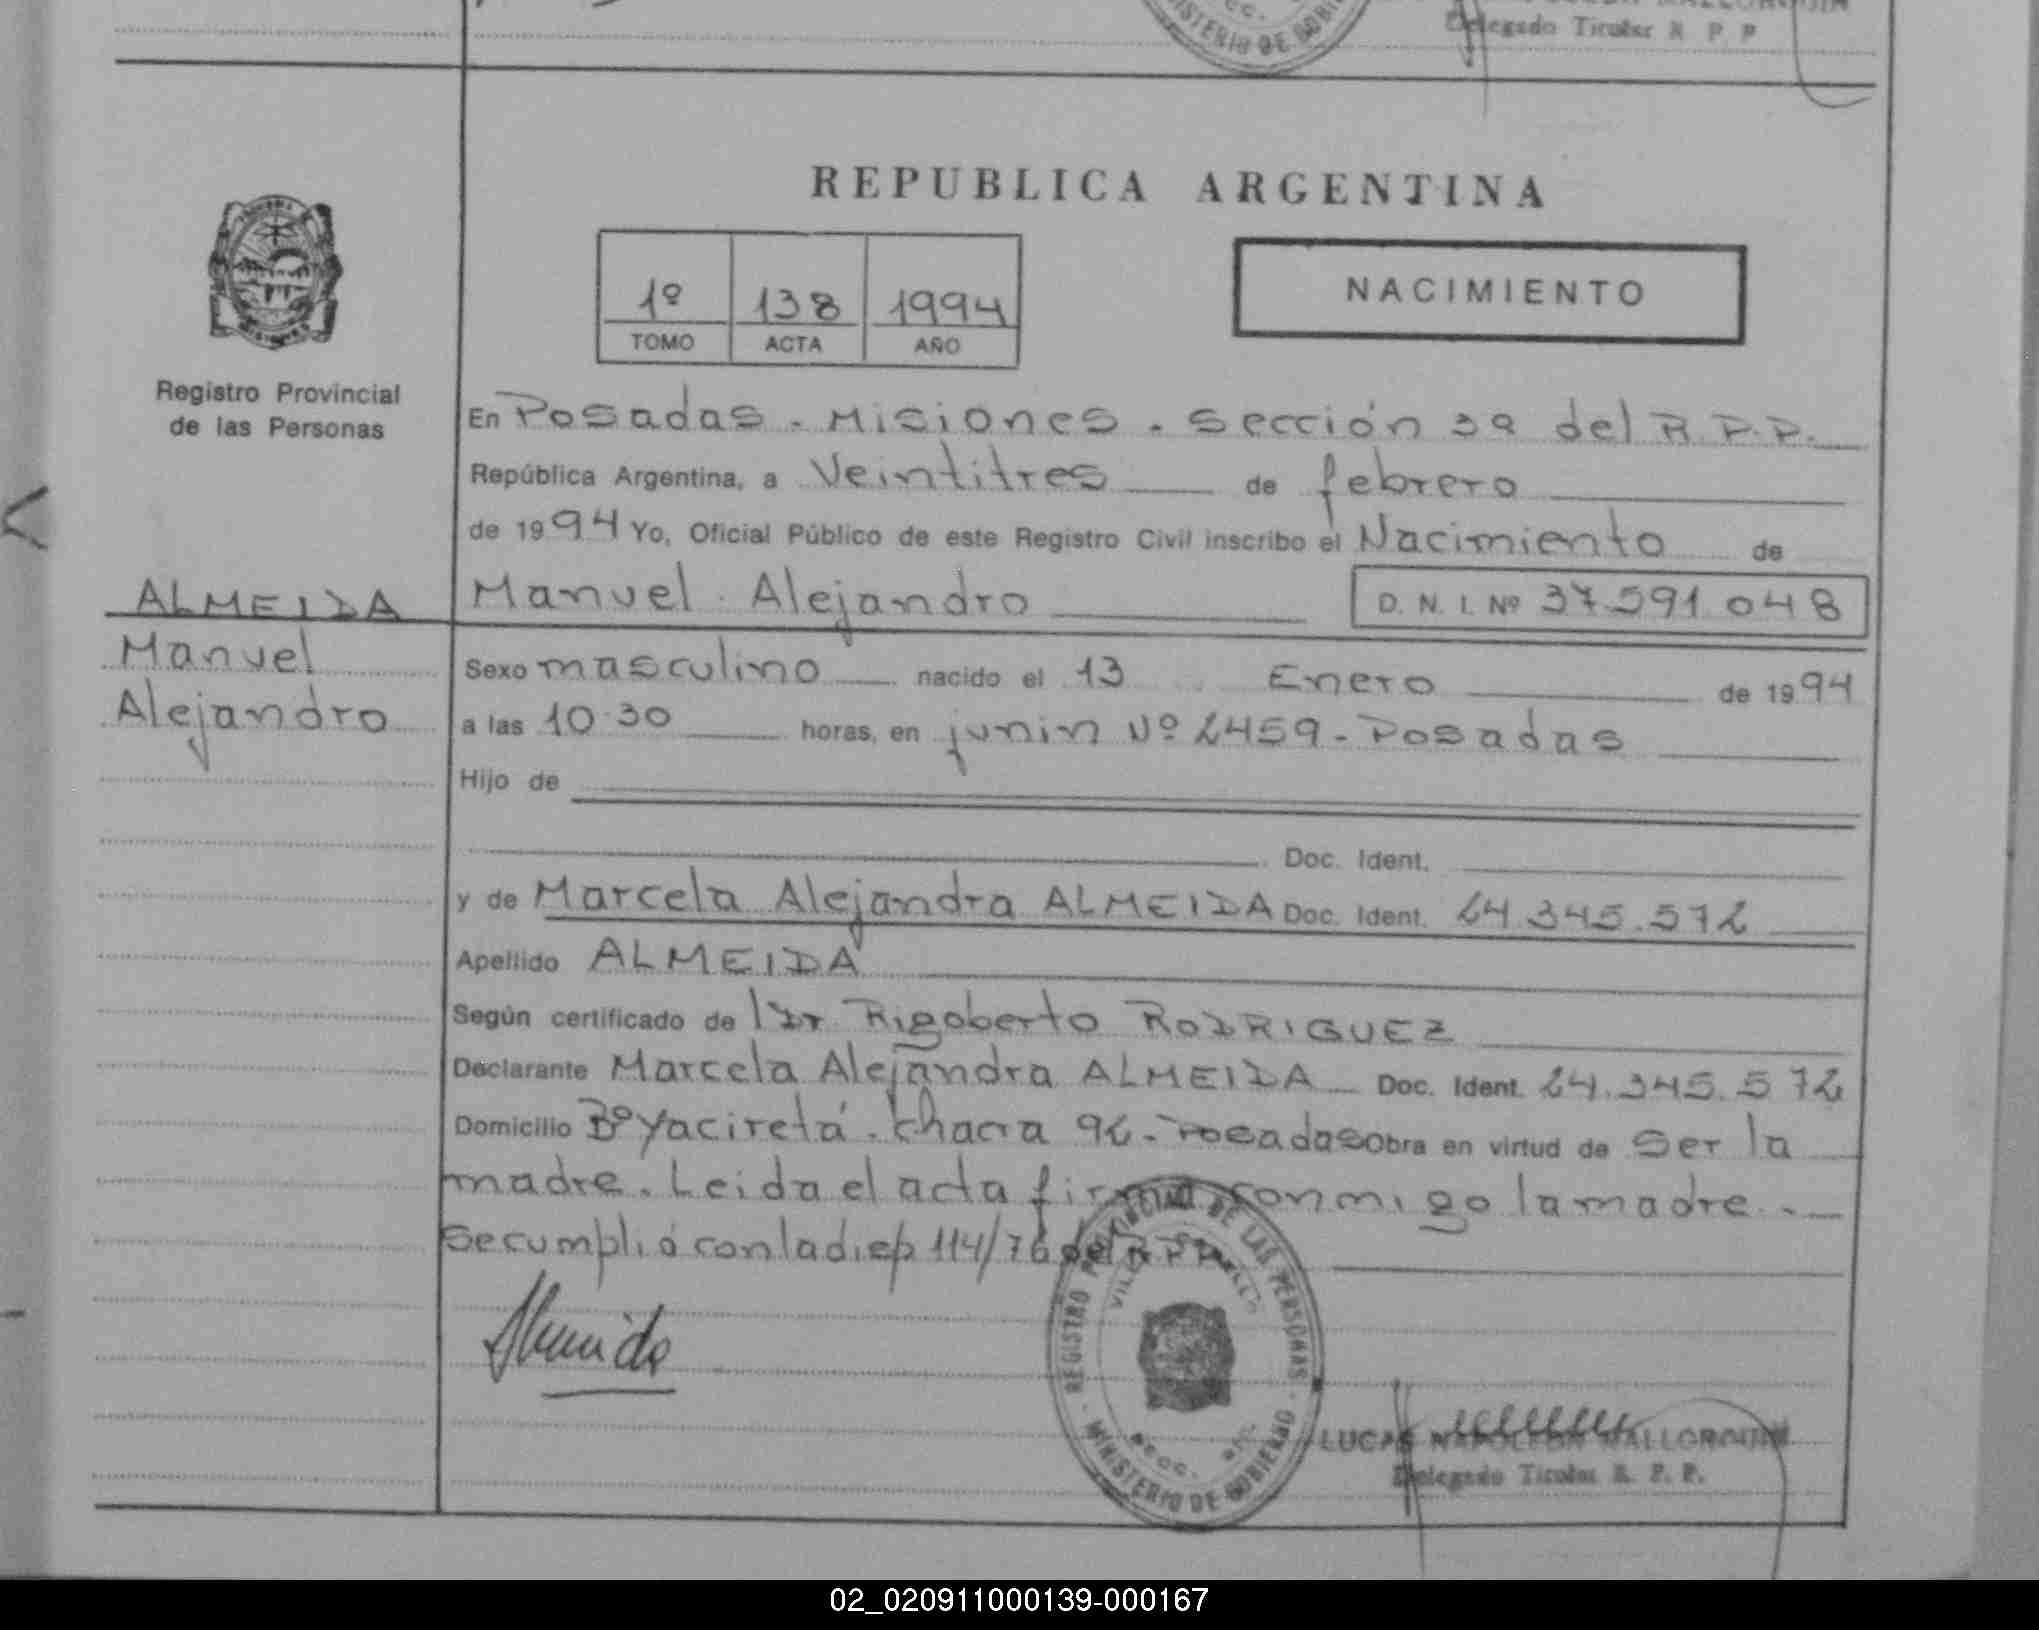 Delegado Titular R. P. P
MINISTERIO DE GOBIERNO
REPUBLICA ARGENTINA
1º 138 1994
TOMO ACTA AÑO
NACIMIENTO
Registro Provincial
de las Personas
En Posadas - Misiones - Sección 3a del R.P.P.
República Argentina, a Veintitres de febrero
de 1994 Yo, Oficial Público de este Registro Civil inscribo el Nacimiento de
ALMEIDA
Manuel
Alejandro
Manuel Alejandro D. N. I. Nº 37.591.048
Sexo masculino nacido el 13 Enero de 1994
a las 10.30 horas, en junin Nº 2459 - Posadas
Hijo de
Doc. Ident.
y de Marcela Alejandra ALMEIDA Doc. Ident. 24.345.572
Apellido ALMEIDA
Según certificado de l Dr. Rigoberto RODRIGUEZ
Declarante Marcela Alejandra ALMEIDA Doc. Ident. 24.345.572
Domicilio Bº Yaciretá. Chacra 96 - Posadas Obra en virtud de Ser la
madre. Leida el acta firma conmigo la madre. -
Se cumplió con la disp 114/76 del R P P
Almeida
REGISTRO PROVINCIAL DE LAS PERSONAS - MINISTERIO DE GOBIERNO
LUCAS NAPOLEON MALLORQUIN
Delegado Titular R. P. P.
02_020911000139-000167